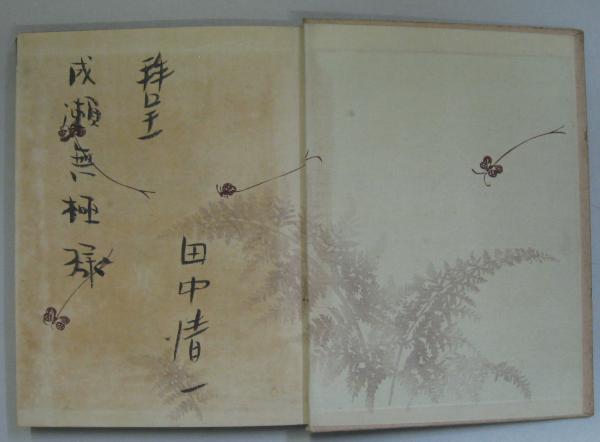 拝呈
田中清一
成瀬無極様